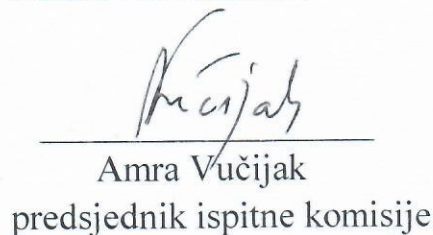 Vučijak
Amra Vučijak
predsjednik ispitne komisije